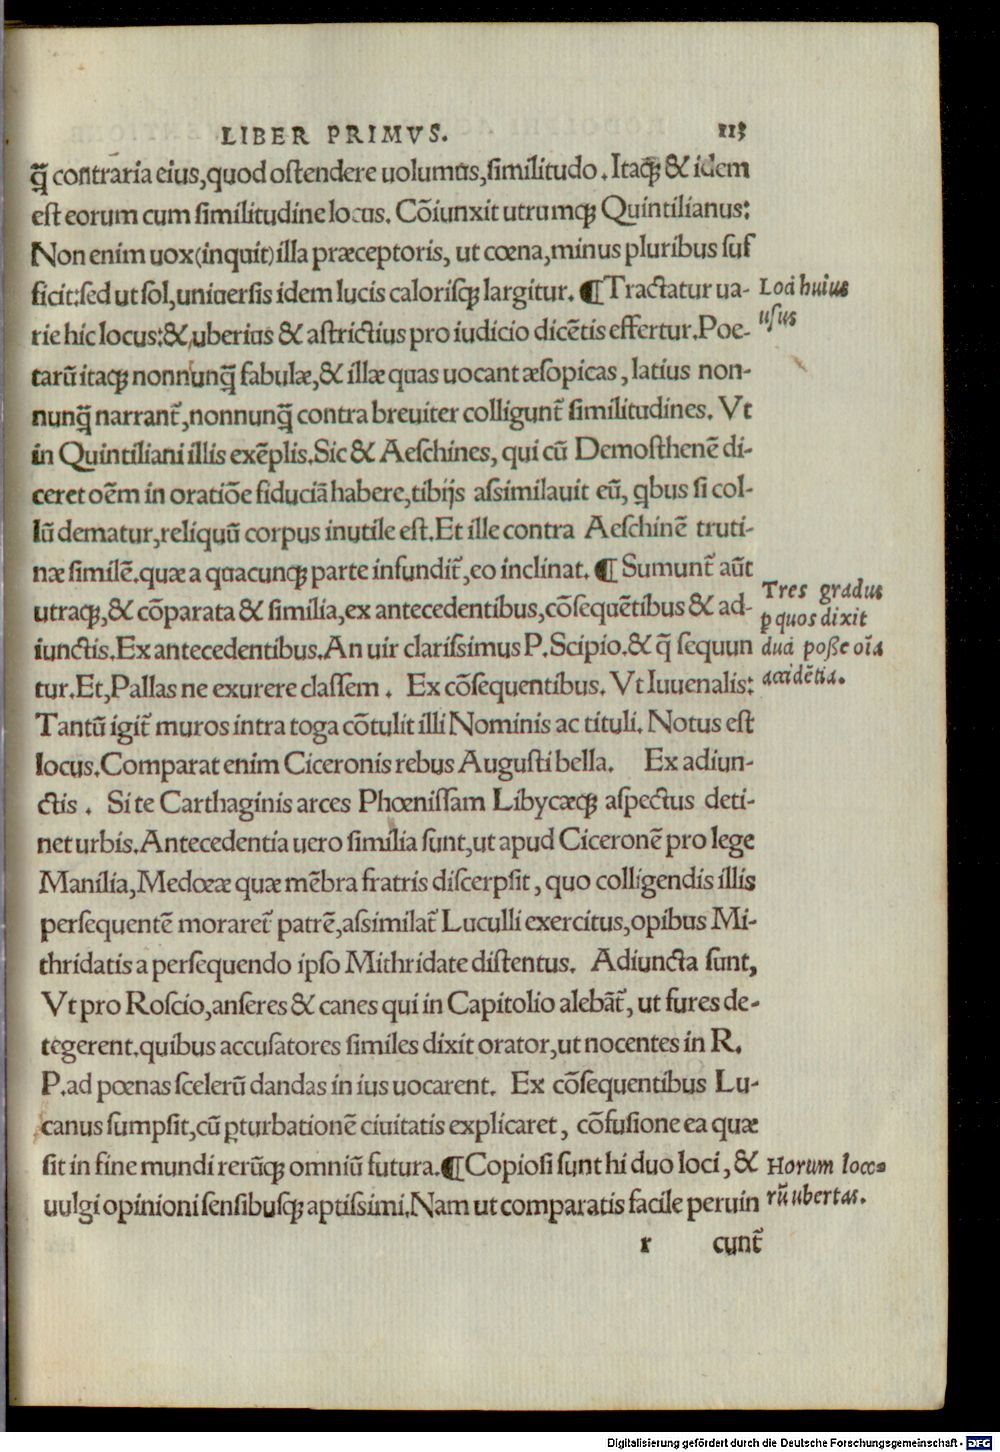 LIBER PRIMVS. 113
q̃ contraria eius,quod ostendere uolumus,similitudo. Itaqꝫ & idem
est eorum cum similitudine locus. Cõiunxit utrumqꝫ Quintilianus:
Non enim uox(inquit)illa præceptoris, ut cœna,minus pluribus suf
ficit:sed ut sol,uniuersis idem lucis calorisqꝫ largitur. ¶Tractatur ua-
Loci huius
usus
rie hic locus:& uberius & astrictius pro iudicio dicẽtis effertur.Poe-
tarũ itaqꝫ nonnunq̃ fabulæ,& illæ quas uocant æsopicas, latius non-
nunq̃ narrant᷑,nonnunq̃ contra breuiter colligunt᷑ similitudines. Vt
in Quintiliani illis exẽplis.Sic & Aeschines, qui cũ Demosthenẽ di-
ceret oẽm in oratiõe fiduciã habere,tibijs assimilauit eũ, qbus si col-
lũ dematur,reliquũ corpus inutile est.Et ille contra Aeschinẽ truti-
næ similẽ.quæ a quacunqꝫ parte infundit᷑,eo inclinat. ¶ Sumunt᷑ aũt
utraqꝫ,& cõparata & similia,ex antecedentibus,cõsequẽtibus & ad-
Tres gradus
ꝑ quos dixit
duci posse oĩa
accidẽtia.
iunctis.Ex antecedentibus.An uir clarissimus P.Scipio.& q̃ sequun
tur.Et,Pallas ne exurere classem. Ex cõsequentibus. Vt Iuuenalis:
Tantũ igit᷑ muros intra toga cõtulit illi Nominis ac tituli. Notus est
locus.Comparat enim Ciceronis rebus Augusti bella. Ex adiun-
ctis. Si te Carthaginis arces Phœnissam Libycæqꝫ aspectus deti-
net urbis.Antecedentia uero similia sunt,ut apud Ciceronẽ pro lege
Manilia,Medœæ quæ mẽbra fratris discerpsit, quo colligendis illis
persequentẽ moraret᷑ patrẽ,assimilat᷑ Luculli exercitus,opibus Mi-
thridatis a persequendo ipso Mithridate distentus. Adiuncta sunt,
Vt pro Roscio,anseres & canes qui in Capitolio alebãt᷑, ut fures de-
tegerent.quibus accusatores similes dixit orator,ut nocentes in R.
P.ad pœnas scelerũ dandas in ius uocarent. Ex cõsequentibus Lu-
canus sumpsit,cũ ꝑturbationẽ ciuitatis explicaret, cõfusione ea quæ
sit in fine mundi rerũqꝫ omniũ futura.¶Copiosi sunt hi duo loci, &
Horum loco-
rũ ubertas.
uulgi opinioni sensibusqꝫ aptissimi.Nam ut comparatis facile peruin
r cunt᷑
Digitalisierung gefördert durch die Deutsche Forschungsgemeinschaft - DFG